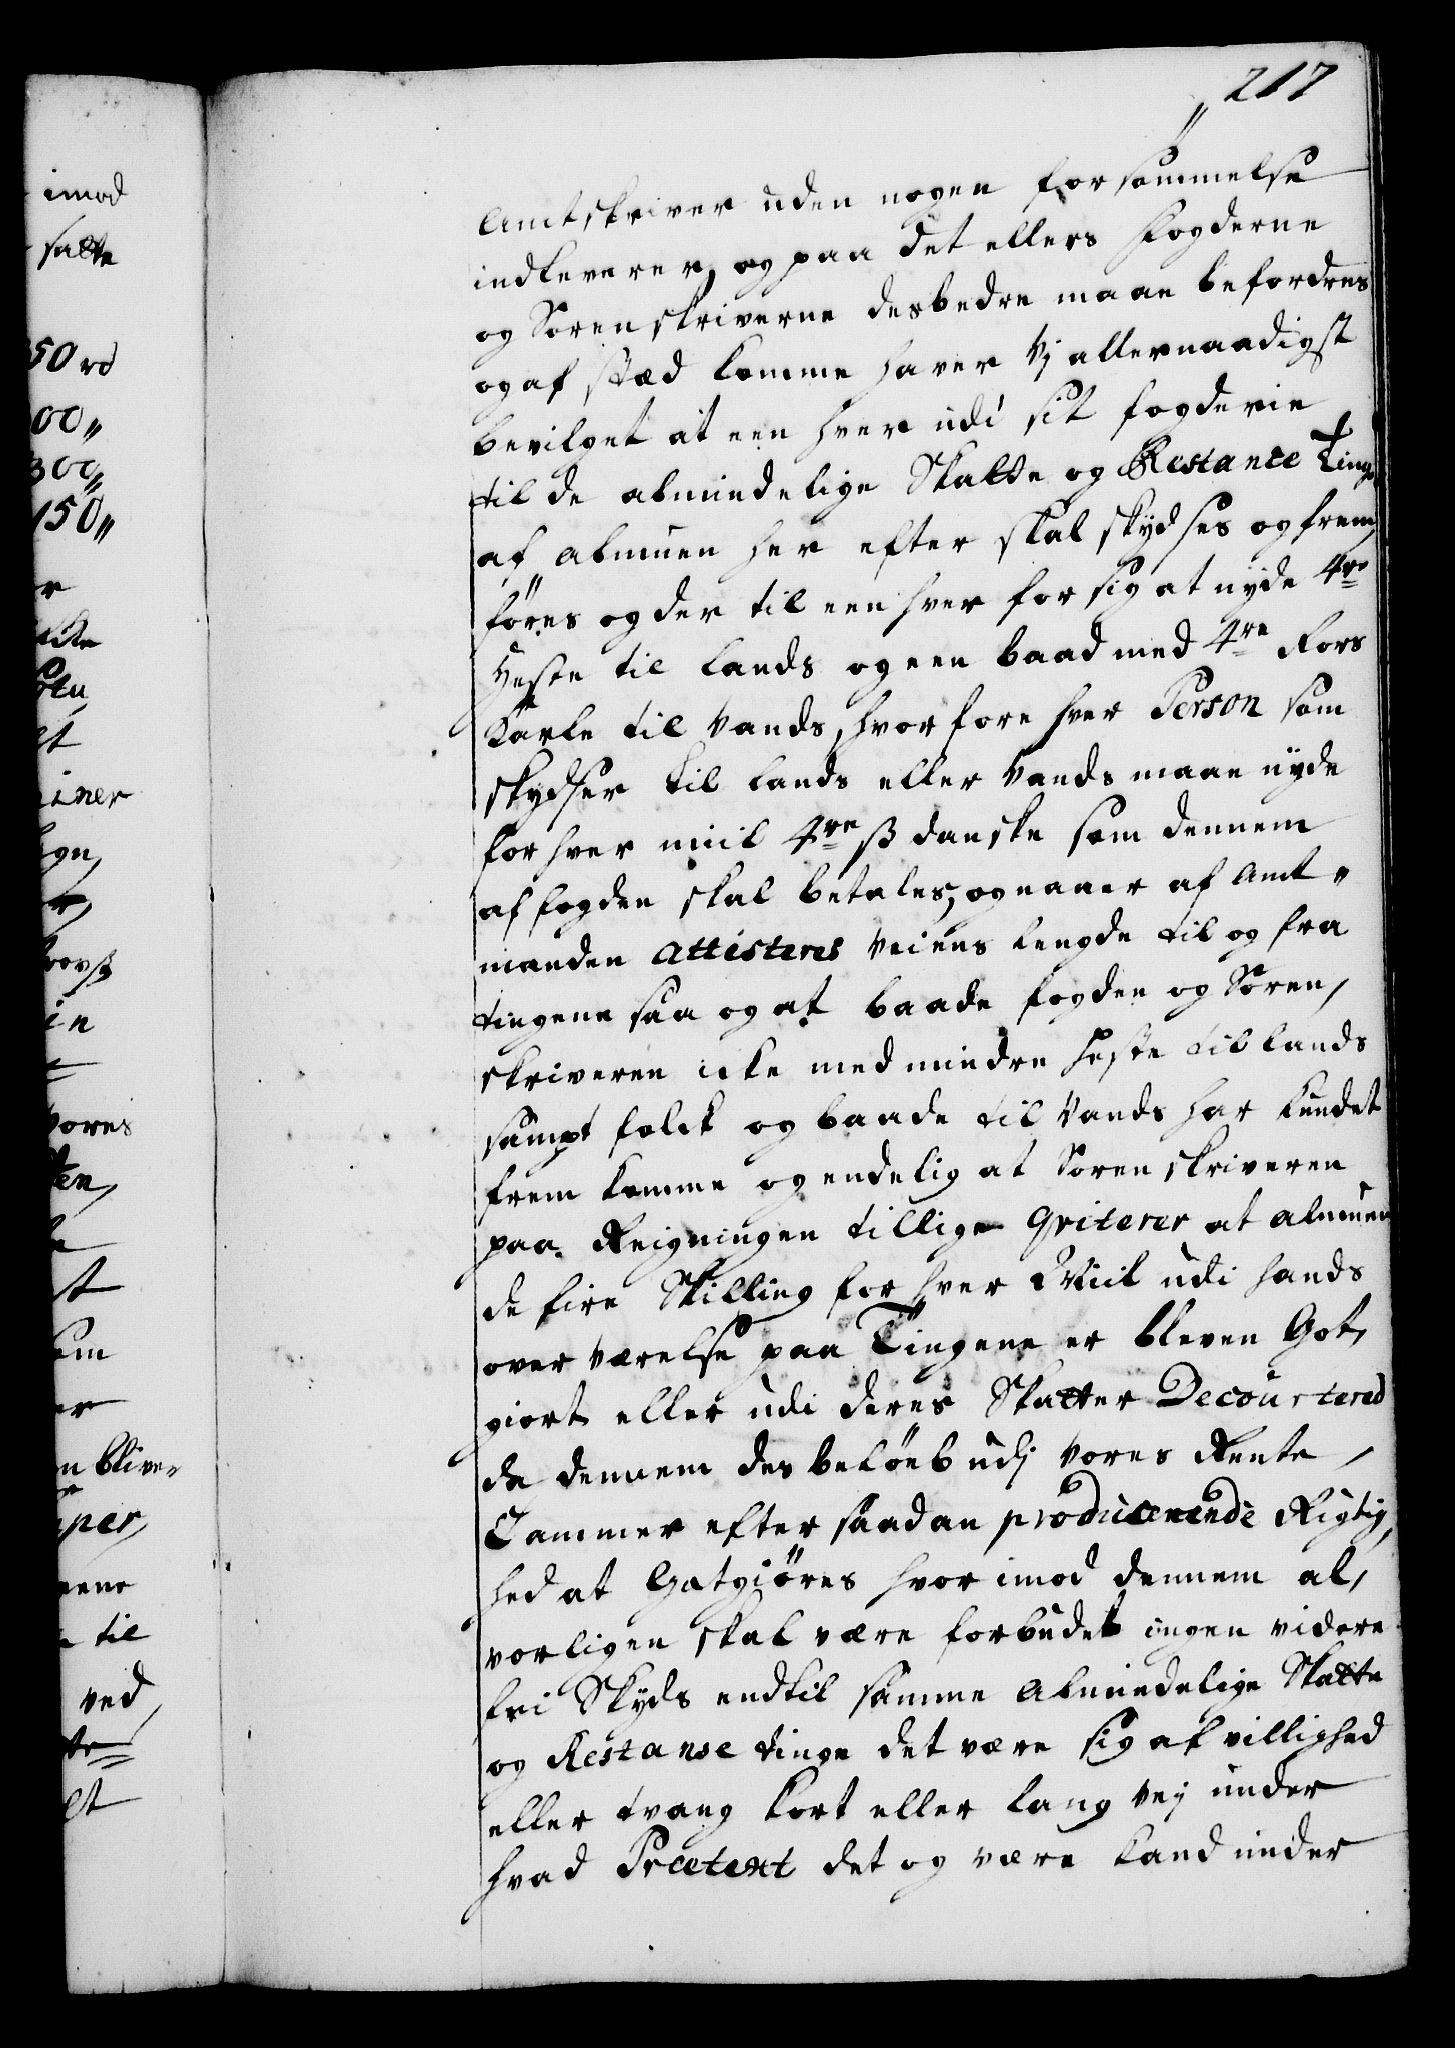 217
imod
satte
50 rd
00„
300„
150„
Amtskriver uden nogen forsømmelse
indleverer, og paa det ellers Fogderne
og Sorenskriverne desbedre maae befordres
og af stæd komme haver Vj allernaadigst
bevilget at een hver udi sit fogderie
til de almindelige Skatte og Restance Ting,
af almuen her efter skal skydses og frem,
føres og der til een hver for sig at nyde 4re
Heste til lands og een baad med 4re Rors
Karle til Vands, hvorfore hver Person som
skydser til lands eller Vands maae nyde
for hver miil 4re ß danske som dennem
af fogden skal betales, og naar af Amt„
manden attesteres Veiens lengde til og fra
tingene saa og at baade fogden og Soren,
skriveren icke med mindre heste til lands
sampt folck og baade til Vands har kundet
frem komme og endelig at Sorenskriveren
paa Reigningen tillige qviterer at almuen
de fire Skilling for hver Miil udi hands
overværelse paa Tingene er bleven Got,
giort eller udi deres Skatter Decourtered
da dennem des beløeb udj vores Rente,
Cammer efter saadan producerende Rigtig,
hed at Gotgiøres hvor imod dennem al,
vorligen skal være forbudet ingen videre
fri Skyds end til samme Almindelige Skatte
og Restanse tinge det være sig af villighed
eller tvang kort eller lang Vej under
hvad Prætext det og være kand under
iner
vores
ten,
st
er
n bliver
til
ved